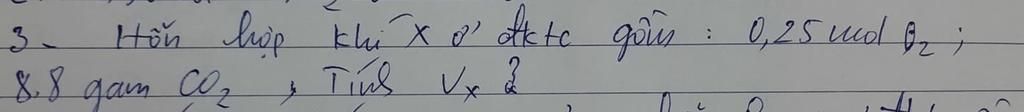 3- Hỗn hợp khí X ở đktc gồm : 0,25 mol O2 ;
8.8 gam CO2 , Tính Vx ?